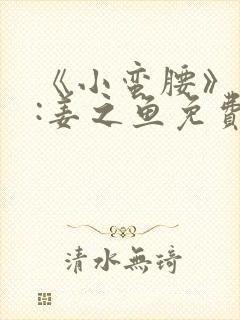 《小蛮腰》
:姜之鱼免費
清水無琦